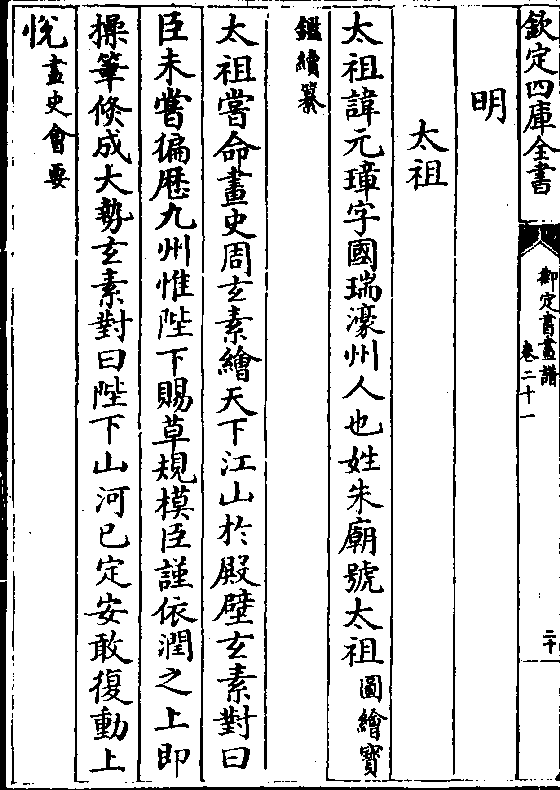 欽定四庫全書
御定書畫譜
卷二十一
二十
明
太祖
太祖諱元璋字國瑞濠州人也姓朱廟號太祖圖繪寳
鑑續纂
太祖嘗命畫史周玄素繪天下江山於殿壁玄素對曰
臣未嘗徧歴九州惟陛下賜草規模臣謹依潤之上即
操筆倐成大勢玄素對曰陛下山河已定安敢復動上
悦畫史會要